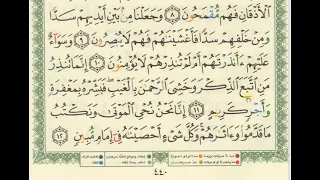 ٱلْأَذْقَانِ فَهُم مُّقْمَحُونَ ٨ وَجَعَلْنَا مِنۢ بَيْنِ أَيْدِيهِمْ سَدًّا
وَمِنْ خَلْفِهِمْ سَدًّا فَأَغْشَيْنَٰهُمْ فَهُمْ لَا يُبْصِرُونَ ٩ وَسَوَآءٌ
عَلَيْهِمْ ءَأَنذَرْتَهُمْ أَمْ لَمْ تُنذِرْهُمْ لَا يُؤْمِنُونَ ١٠ إِنَّمَا تُنذِرُ
مَنِ ٱتَّبَعَ ٱلذِّكْرَ وَخَشِىَ ٱلرَّحْمَٰنَ بِٱلْغَيْبِ فَبَشِّرْهُ بِمَغْفِرَةٍ
وَأَجْرٍ كَرِيمٍ ١١ إِنَّا نَحْنُ نُحْىِ ٱلْمَوْتَىٰ وَنَكْتُبُ
مَا قَدَّمُوا۟ وَءَاثَٰرَهُمْ وَكُلَّ شَىْءٍ أَحْصَيْنَٰهُ فِىٓ إِمَامٍ مُّبِينٍ ١٢
٤٤٠